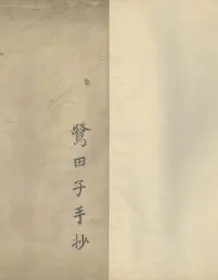 田子手抄